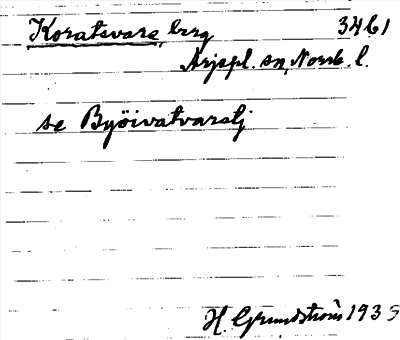 Koratsvare, berg 3461
Arjepl. sn, Norrb. l.
se Byöivatvarstj
H. Grundström 1935